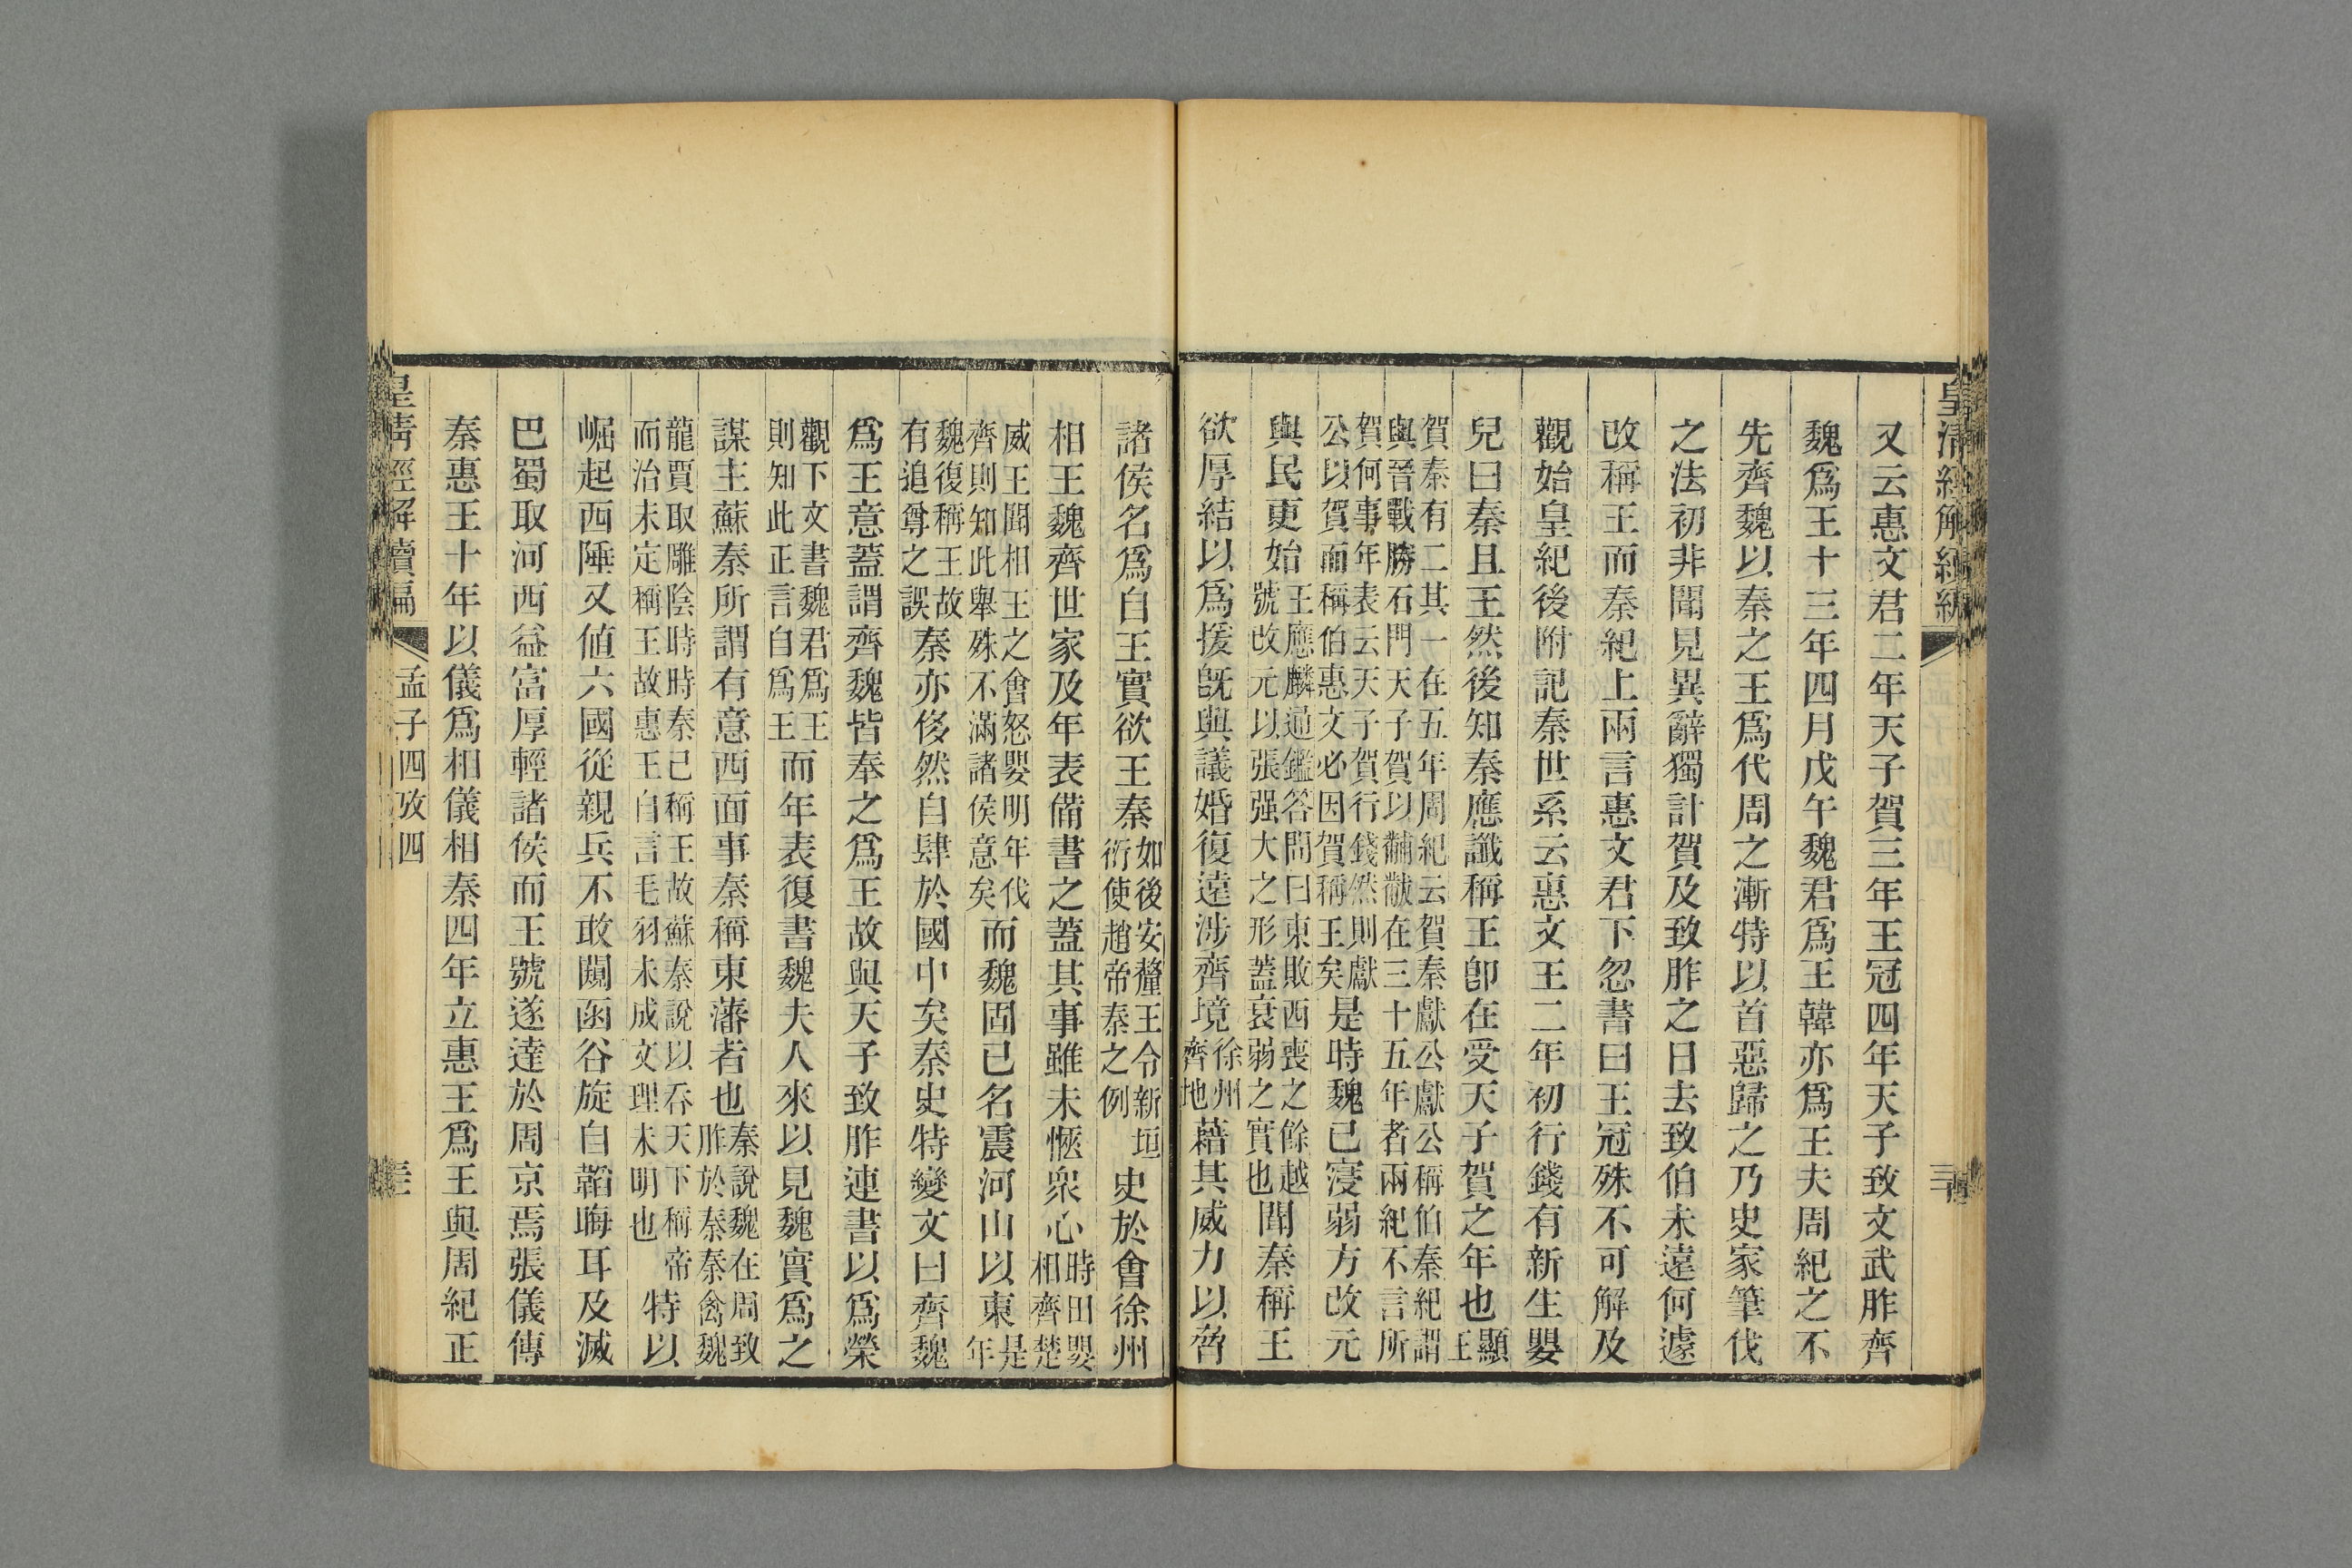 皇清經解續編
又云惠文君二年天子賀三年王冠四年天子致文武胙齊
魏爲王十三年四月戊午魏君爲王韓亦爲王夫周紀之不
先齊魏以秦之王爲代周之漸特以首惡歸之乃史家筆伐
之法初非聞見異辭獨計賀及致胙之日去致伯未遠何遽
改稱王而秦紀上兩言惠文君下忽書曰王冠殊不可解及
觀始皇紀後附記秦世系云惠文王二年初行錢有新生嬰
兒曰秦且王然後知秦應讖稱王卽在受天子賀之年也顯王
賀秦有二其一在五年周紀云賀秦獻公獻公稱伯秦紀謂
與晉戰勝石門天子賀以黼黻在三十五年者兩紀不言所
賀何事年表云天子賀行錢然則獻
公以賀而稱伯惠文必因賀稱王矣是時魏已寖弱方改元
與民更始王應麟通鑑答問曰東敗西喪之餘越
號改元以張强大之形蓋衰弱之實也聞秦稱王
欲厚結以爲援旣與議婚復遠涉齊境徐州齊地藉其威力以脅
諸侯名爲自王實欲王秦如後安釐王令新垣
衍使趙帝秦之例史於會徐州
相王魏齊世家及年表備書之蓋其事雖未愜衆心時田嬰
相齊楚
威王聞相王之會怒嬰明年伐
齊則知此舉殊不滿諸侯意矣而魏固已名震河山以東是年
魏復稱王故
有追尊之誤秦亦侈然自肆於國中矣秦史特變文曰齊魏
爲王意蓋謂齊魏皆奉之爲王故與天子致胙連書以爲榮
觀下文書魏君爲王
則知此正言自爲王而年表復書魏夫人來以見魏實爲之
謀主蘇秦所謂有意西面事秦稱東藩者也秦說魏在周致
胙於秦秦禽魏
龍賈取雕陰時時秦已稱王故蘇秦說以吞天下稱帝
而治未定稱王故惠王自言毛羽未成文理未明也特以
崛起西陲又値六國從親兵不敢闚函谷旋自韜晦耳及滅
巴蜀取河西益富厚輕諸侯而王號遂達於周京焉張儀傳
秦惠王十年以儀爲相儀相秦四年立惠王爲王與周紀正
皇清經解續編
孟子四攷四